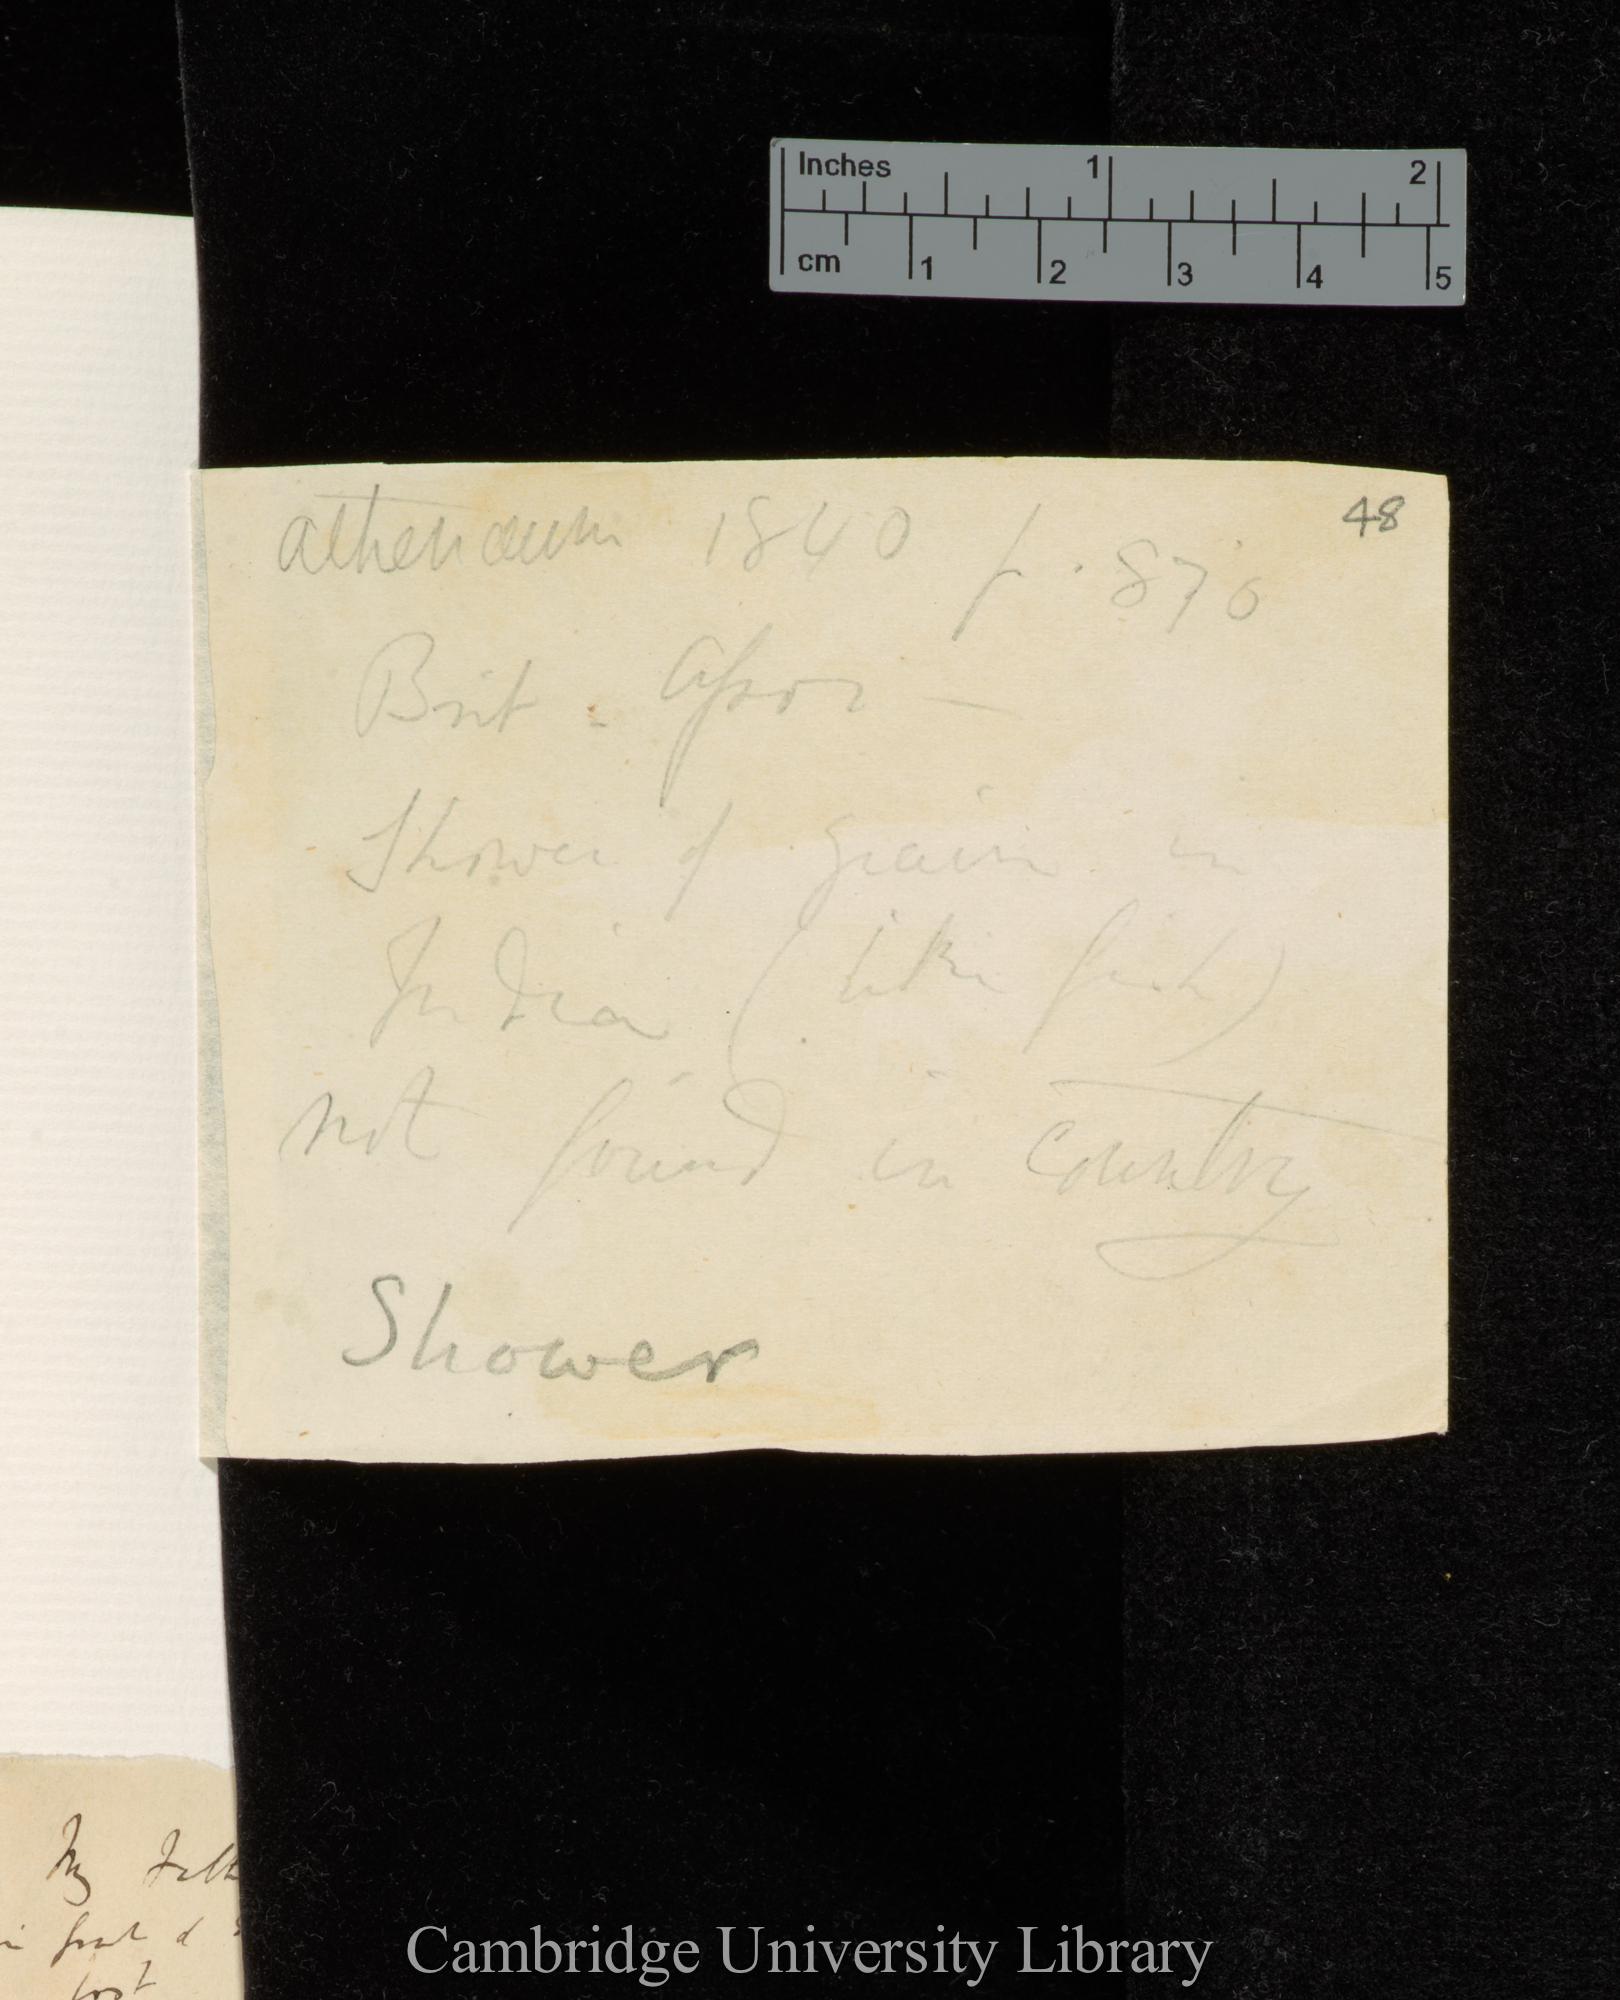 Inches 1 2
cm 1 2 3 4 5
48
Athenæum 1840 p. 870
Brit. Assoc —
Shower of grain in
India (like fish)
not found in country
Shower
My
Cambridge University Library